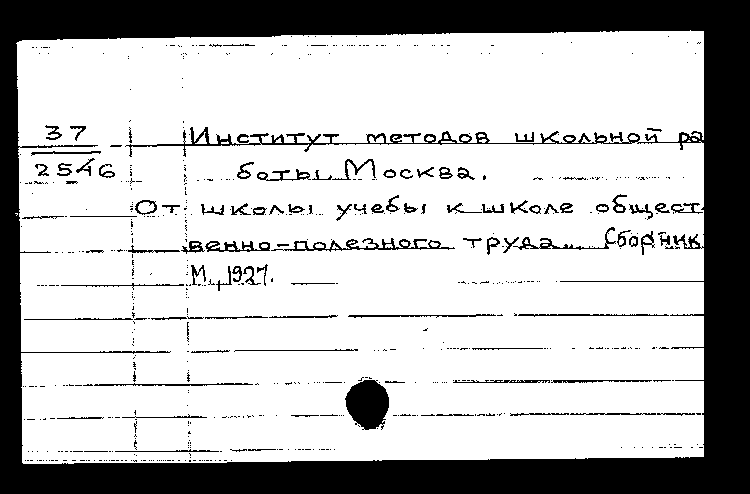 37
2546
Институт методов школьной ра
боты. Москва.
От школы учебы к школе общест-
венно-полезного труда... Сборник
М., 1927.